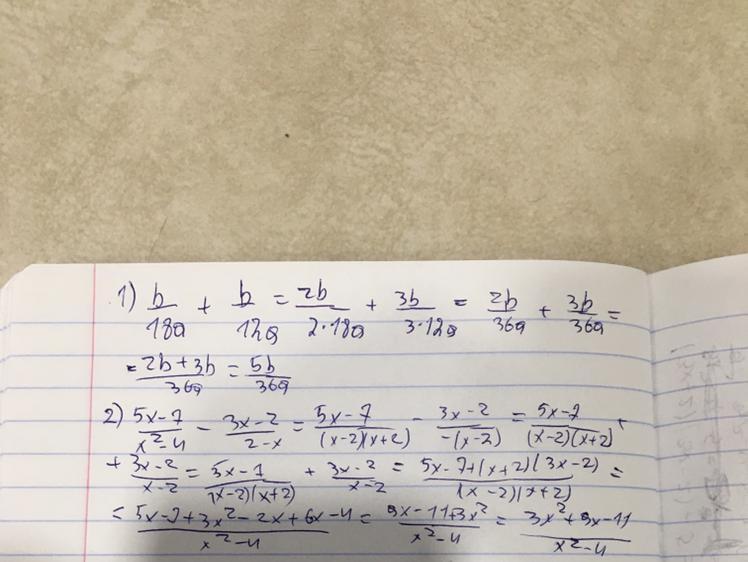 1) b/18a + b/12a = 2b/2·18a + 3b/3·12a = 2b/36a + 3b/36a =
= 2b+3b/36a = 5b/36a
2) 5x-7/x²-4 - 3x-2/2-x = 5x-7/(x-2)(x+2) - 3x-2/-(x-2) = 5x-7/(x-2)(x+2)
+ 3x-2/x-2 = 5x-7/(x-2)(x+2) + 3x-2/x-2 = 5x-7+(x+2)(3x-2)/(x-2)(x+2) =
= 5x-7+3x²-2x+6x-4/x²-4 = 9x-11+3x²/x²-4 = 3x²+9x-11/x²-4